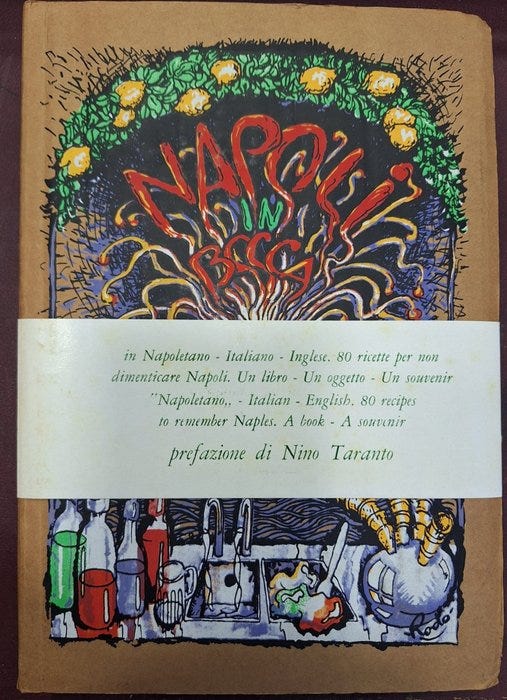 NAPOLI
IN
BOCCA
in Napoletano - Italiano - Inglese. 80 ricette per non
dimenticare Napoli. Un libro - Un oggetto - Un souvenir
"Napoletano,, - Italian - English. 80 recipes
to remember Naples. A book - A souvenir
prefazione di Nino Taranto